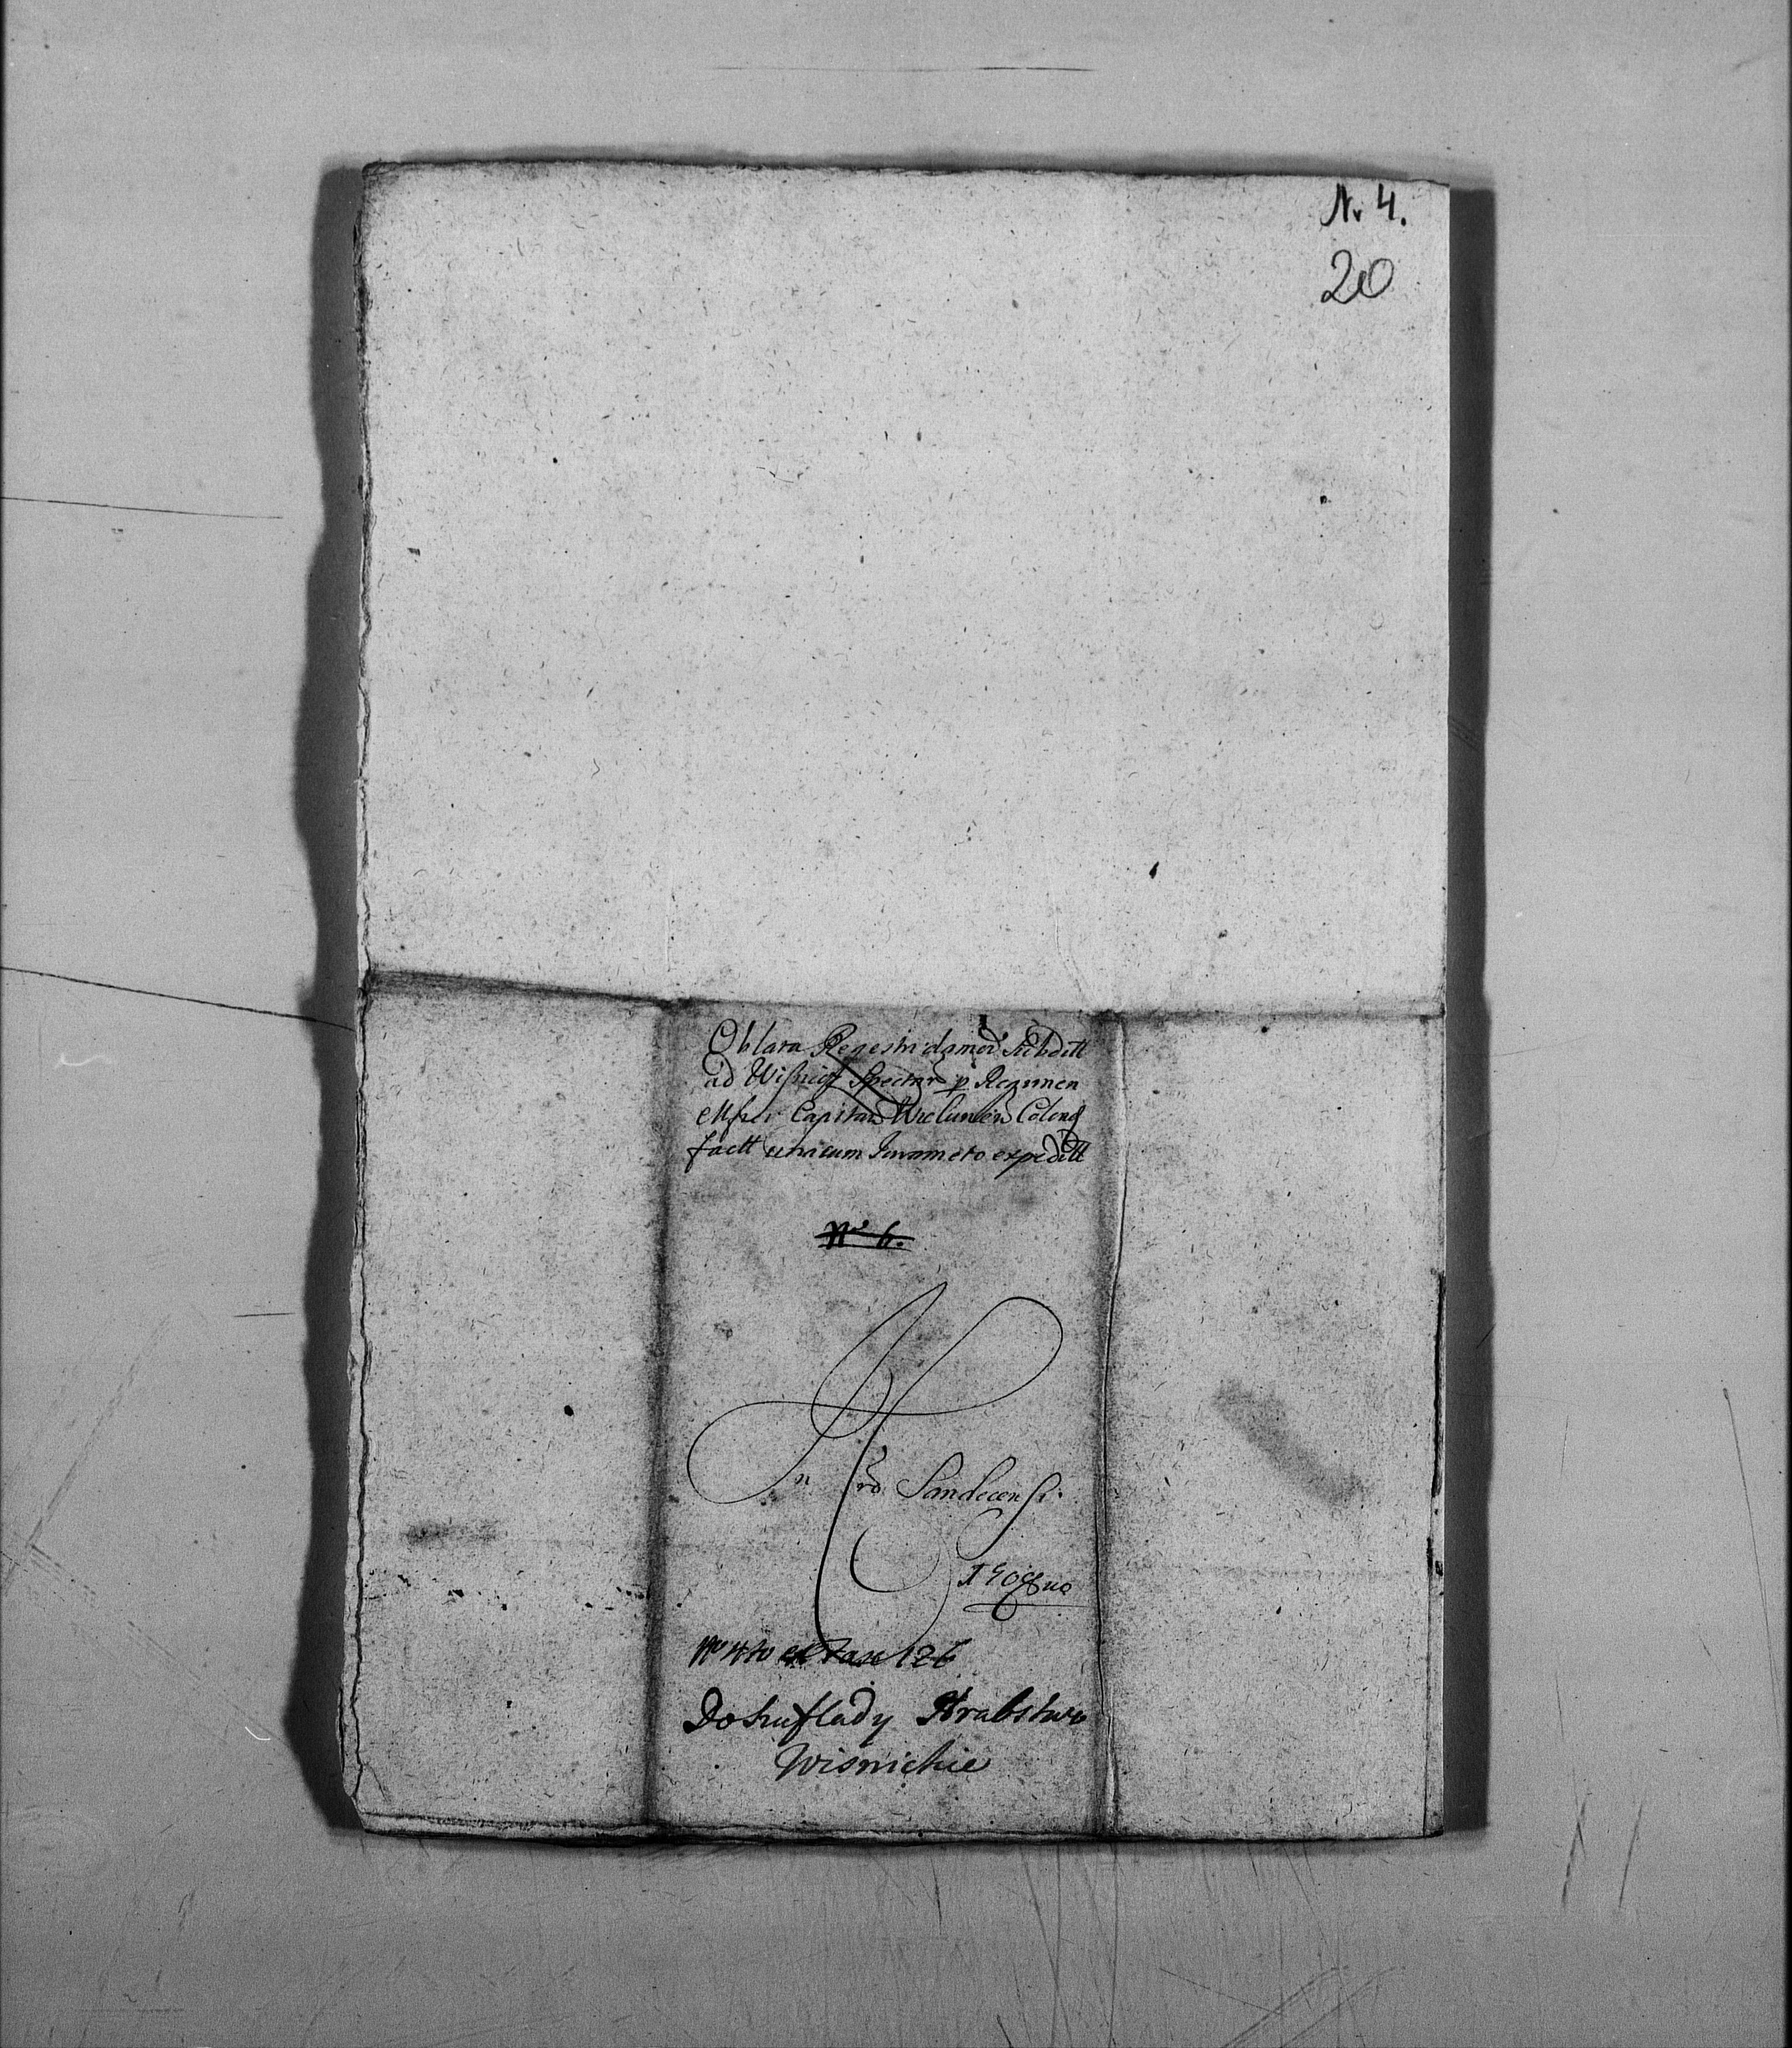 N. 4.
20
Oblata Regestri damor Subditt
ad Wisnicz Spectan p Regimen
Capitan Wielunen Colend
factt unicum Juramento expeditt
No 6.
In Cro Sandecensi
No ex Fasc 126
Do szuflady Hrabstwo
Wisnickie